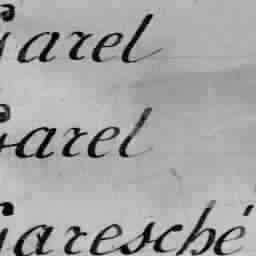 Garel
Garel
Garesché